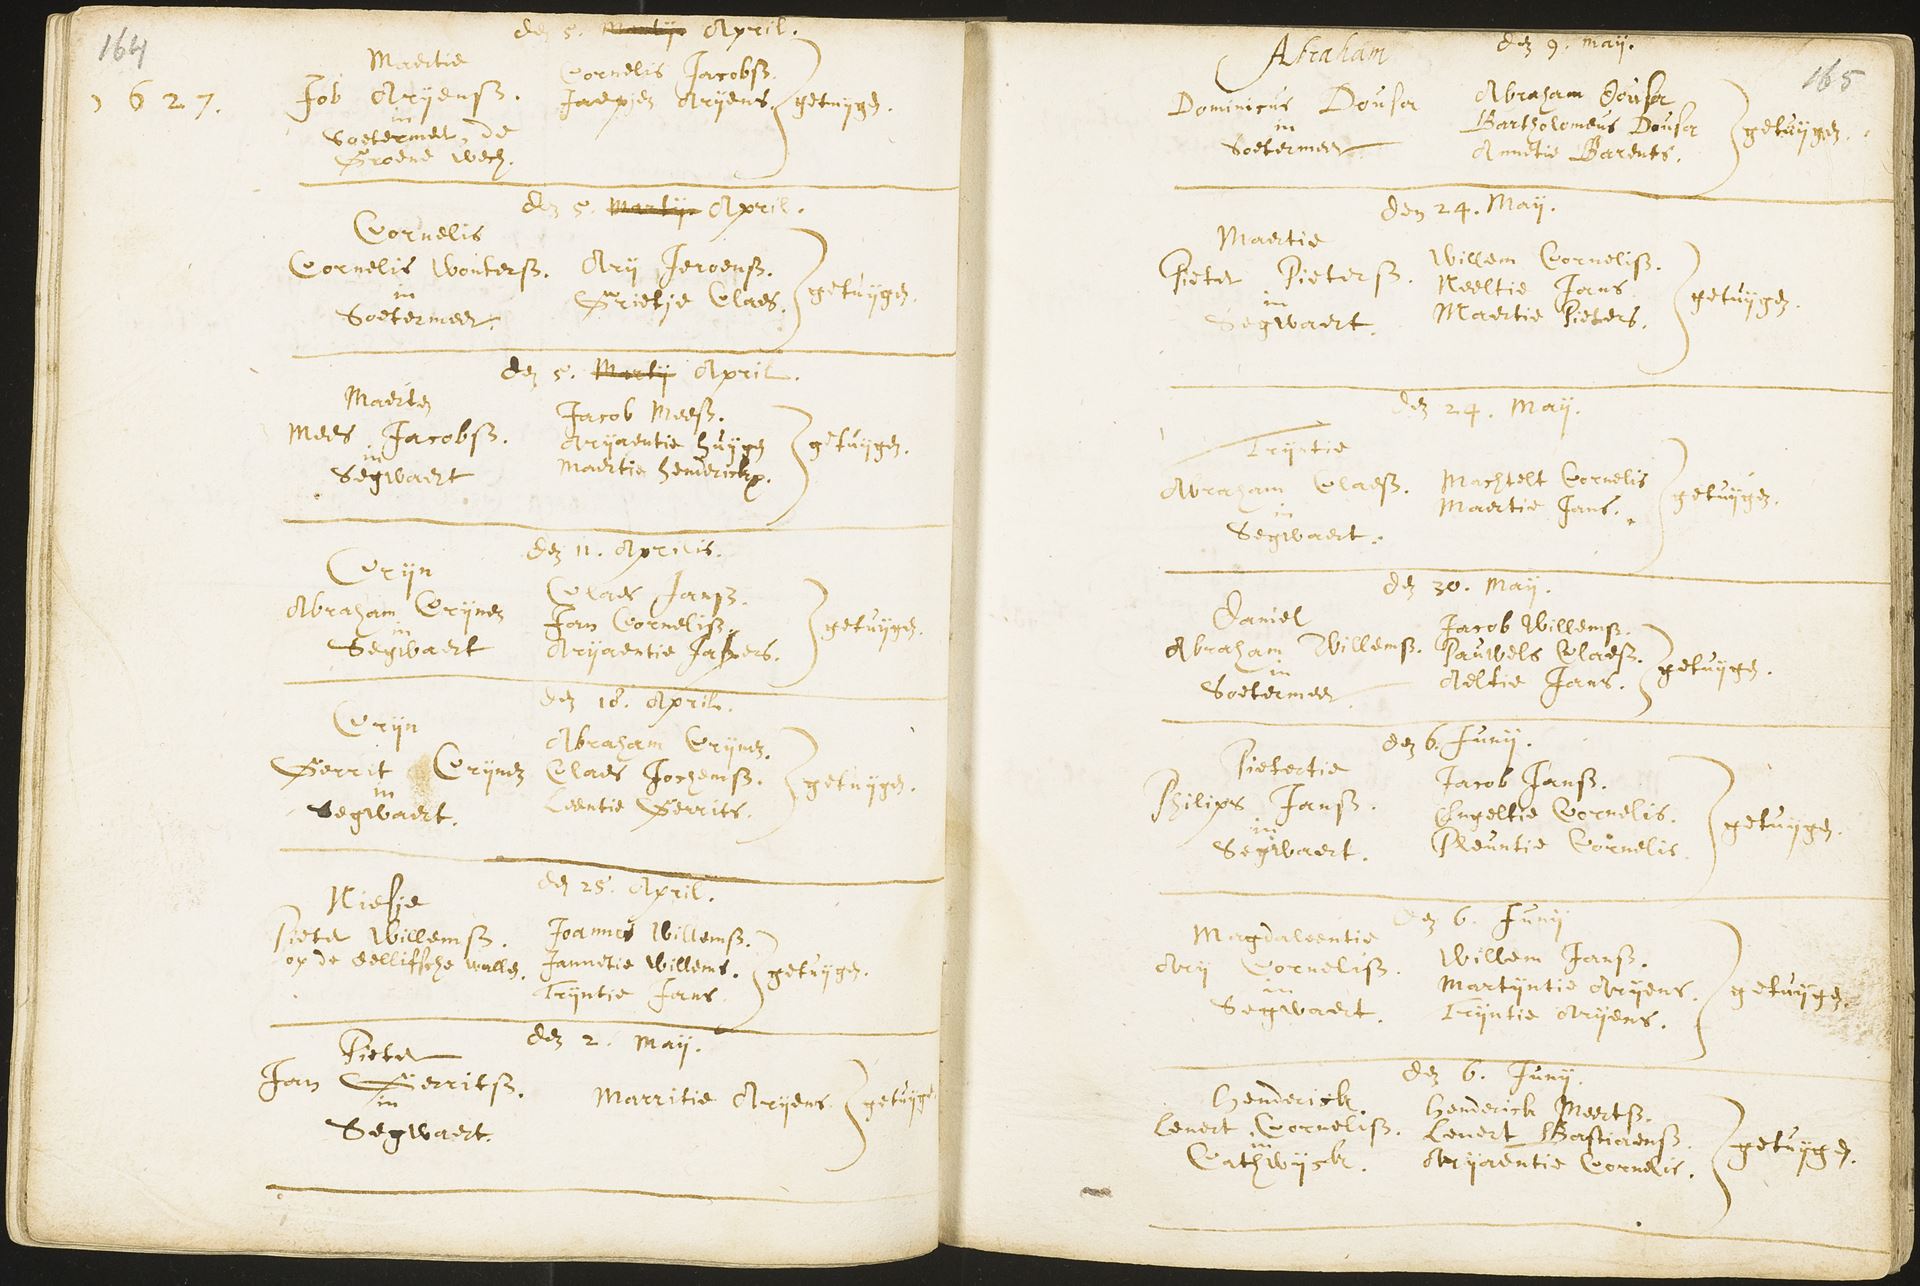 164
1627.
den 5. Martij April.
Maertie
Job Arijensß.
in
Soetermeer, de
Groene wech.
Cornelis Jacobsß.
Jaepjen Arijens.
getuijgen.
den 5. Martij April.
Cornelis
Cornelis Woutersß.
in
Soetermeer.
Arij Jeroensß.
Grietje Claes.
getuijgen.
den 5. Martij April.
Maerten
Mees Jacobsß.
in
Segwaert
Jacob Meesß.
Arijaentie Huijgen
Maertie Hendrickx.
getuijgen.
den 11. Aprilis.
Crijn
Abraham Crijnen
in
Segwaert
Claes Jansß.
Jan Cornelisß.
Arijaentie Jaspers.
getuijgen.
den 18. April.
Crijn
Gerrit Crijnen
in
Segwaert.
Abraham Crijnen.
Claes Jochemsß.
Leentie Gerrits.
getuijgen.
den 25. April.
Niesje
Pieter Willemsß.
op de dellifsche wallen.
Joannes Willemsß.
Jannetie Willems.
Trijntie Jans.
getuijgen.
den 2. Maij.
Pieter
Jan Gerritsß.
in
Segwaert.
Marritie Arijens
getuijgen
165
den 9. Maij.
Abraham
Dominicus Dousa
in
Soetermeer
Abraham Dousa
Bartholomeus Dousa
Annetie Barents.
getuijgen.
den 24. Maij.
Maertie
Pieter Pietersß.
in
Segwaert.
Willem Cornelisß.
Neeltie Jans
Maertie Pieters.
getuijgen.
den 24. Maij.
Trijntie
Abraham Claesß.
in
Segwaert.
Machtelt Cornelis
Maertie Jans.
getuijgen.
den 30. Maij.
Daniel
Abraham Willemsß.
in
Soetermeer
Jacob Willemsß.
Pauwels Claesß.
Aeltie Jans.
getuijgen.
den 6. Junij.
Pietertie
Philips Jansß.
in
Segwaert.
Jacob Jansß.
Engeltie Cornelis.
Pleuntie Cornelis.
getuijgen.
den 6. Junij
Magdaleentie
Arij Cornelisß.
in
Segwaert.
Willem Jansß.
Martijntie Arijens.
Trijntie Arijens.
getuijgen.
den 6. Junij.
Henderick
Lenert Cornelisß.
in
Cathwijck.
Henderick Meertsß.
Lenert Bastiaensß.
Arijaentie Cornelis.
getuijgen.